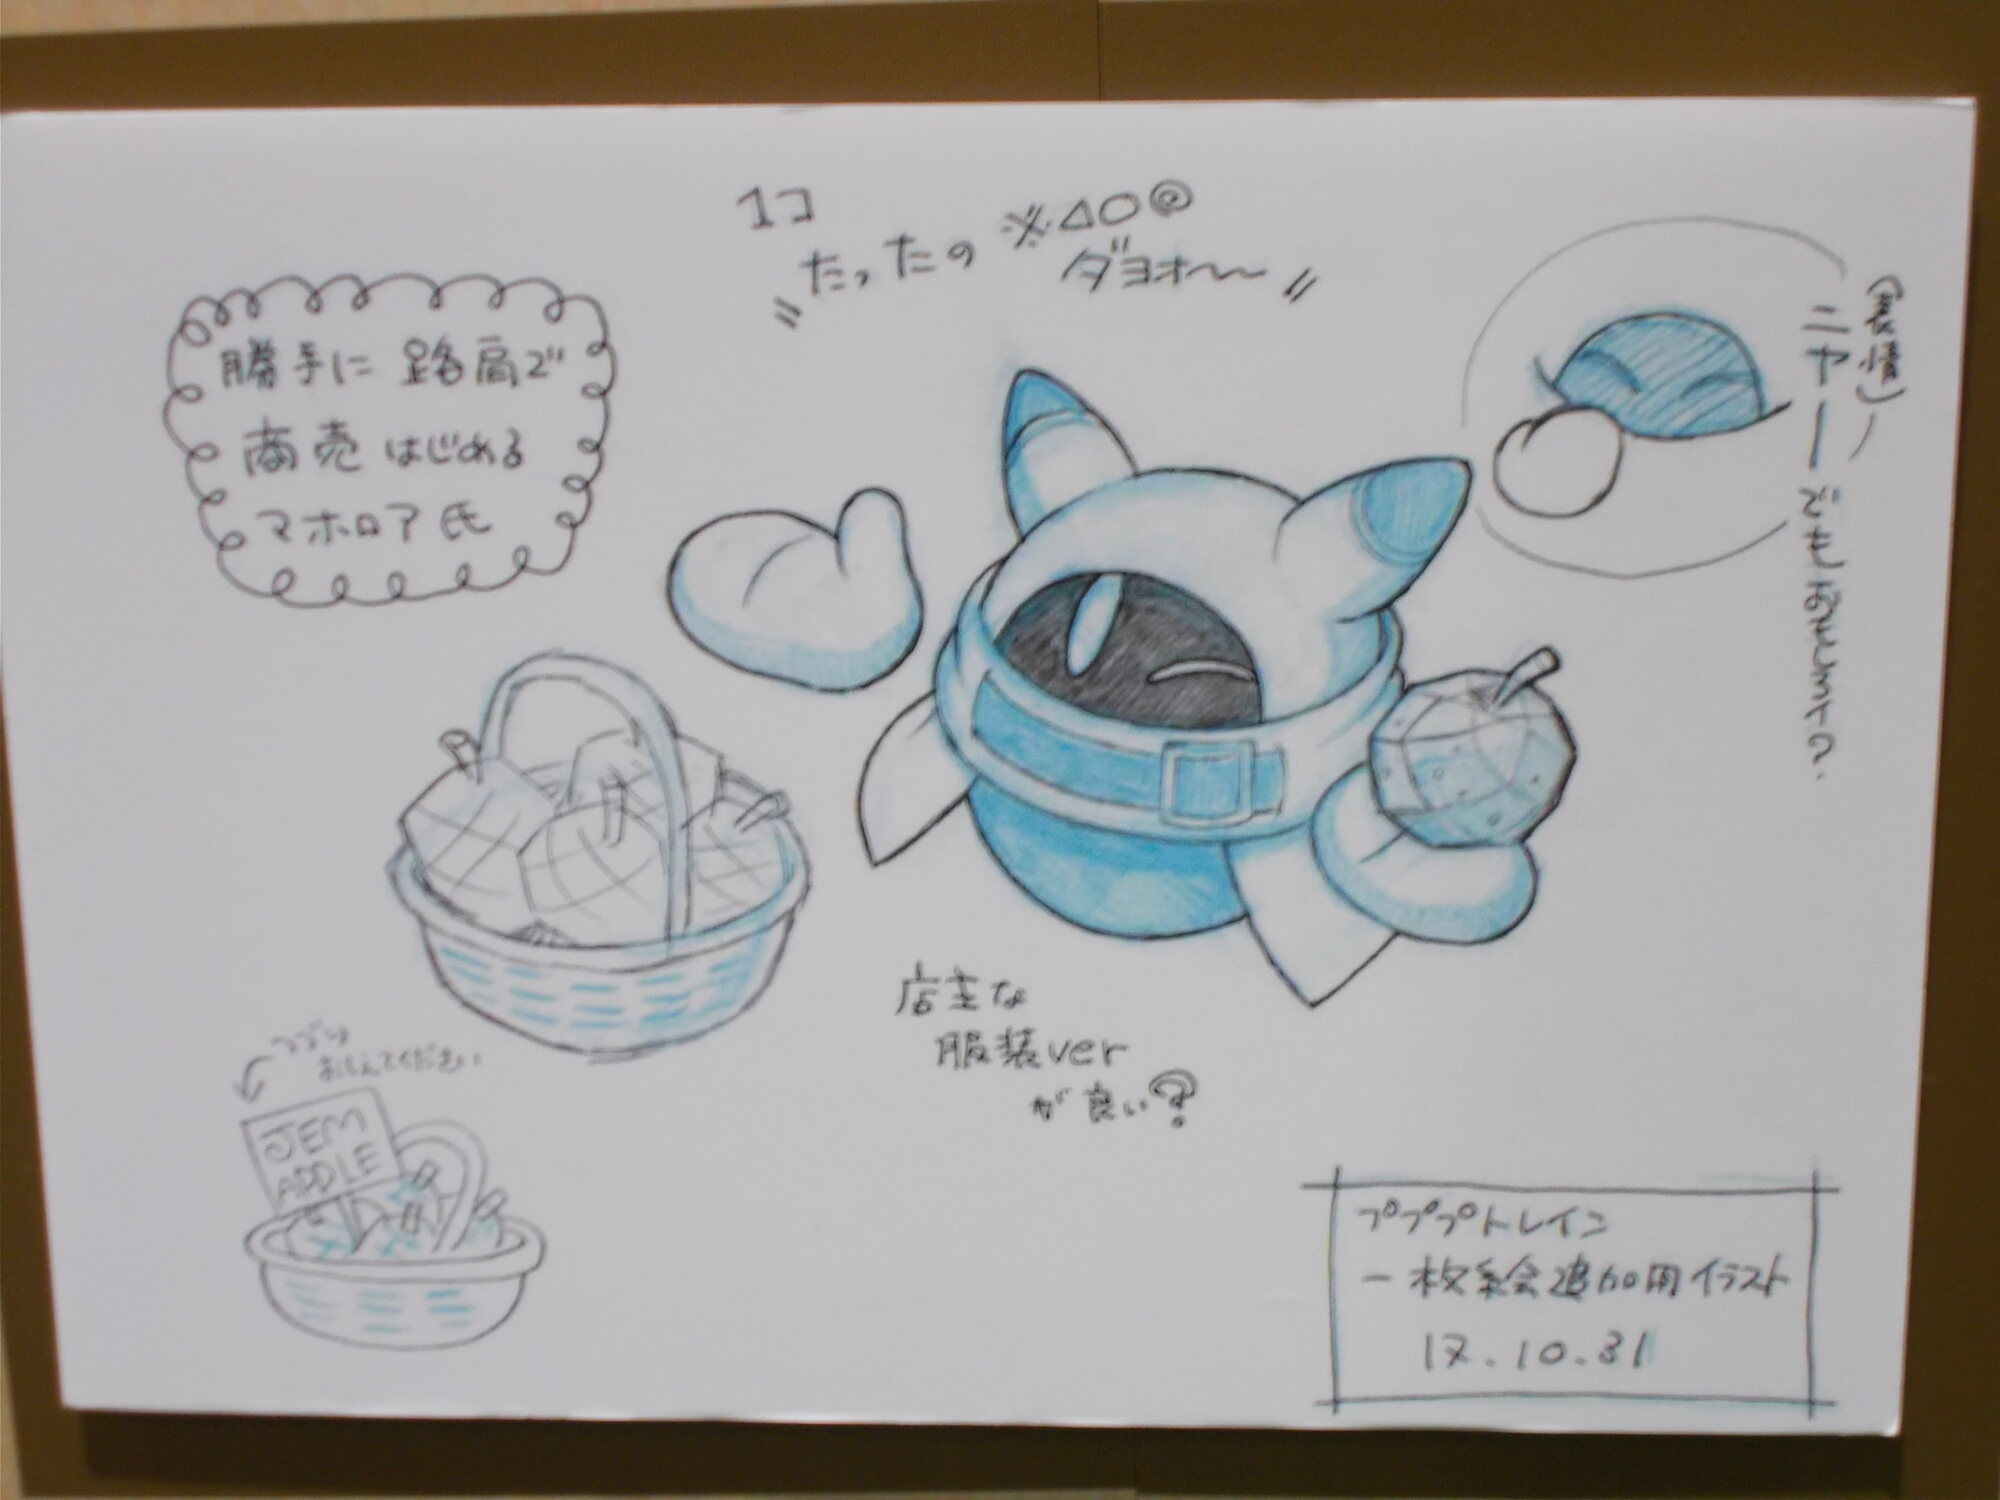 1コ
たったの ※△○◎
ダヨオ〜〜
勝手に 路肩で
商売 はじめる
マホロア 氏
ニヤー
店主な
服装ver
が 良い?
つづりは
おしえてください
JEM
APPLE
プププトレイン
一枚絵追加用イラスト
17.10.31